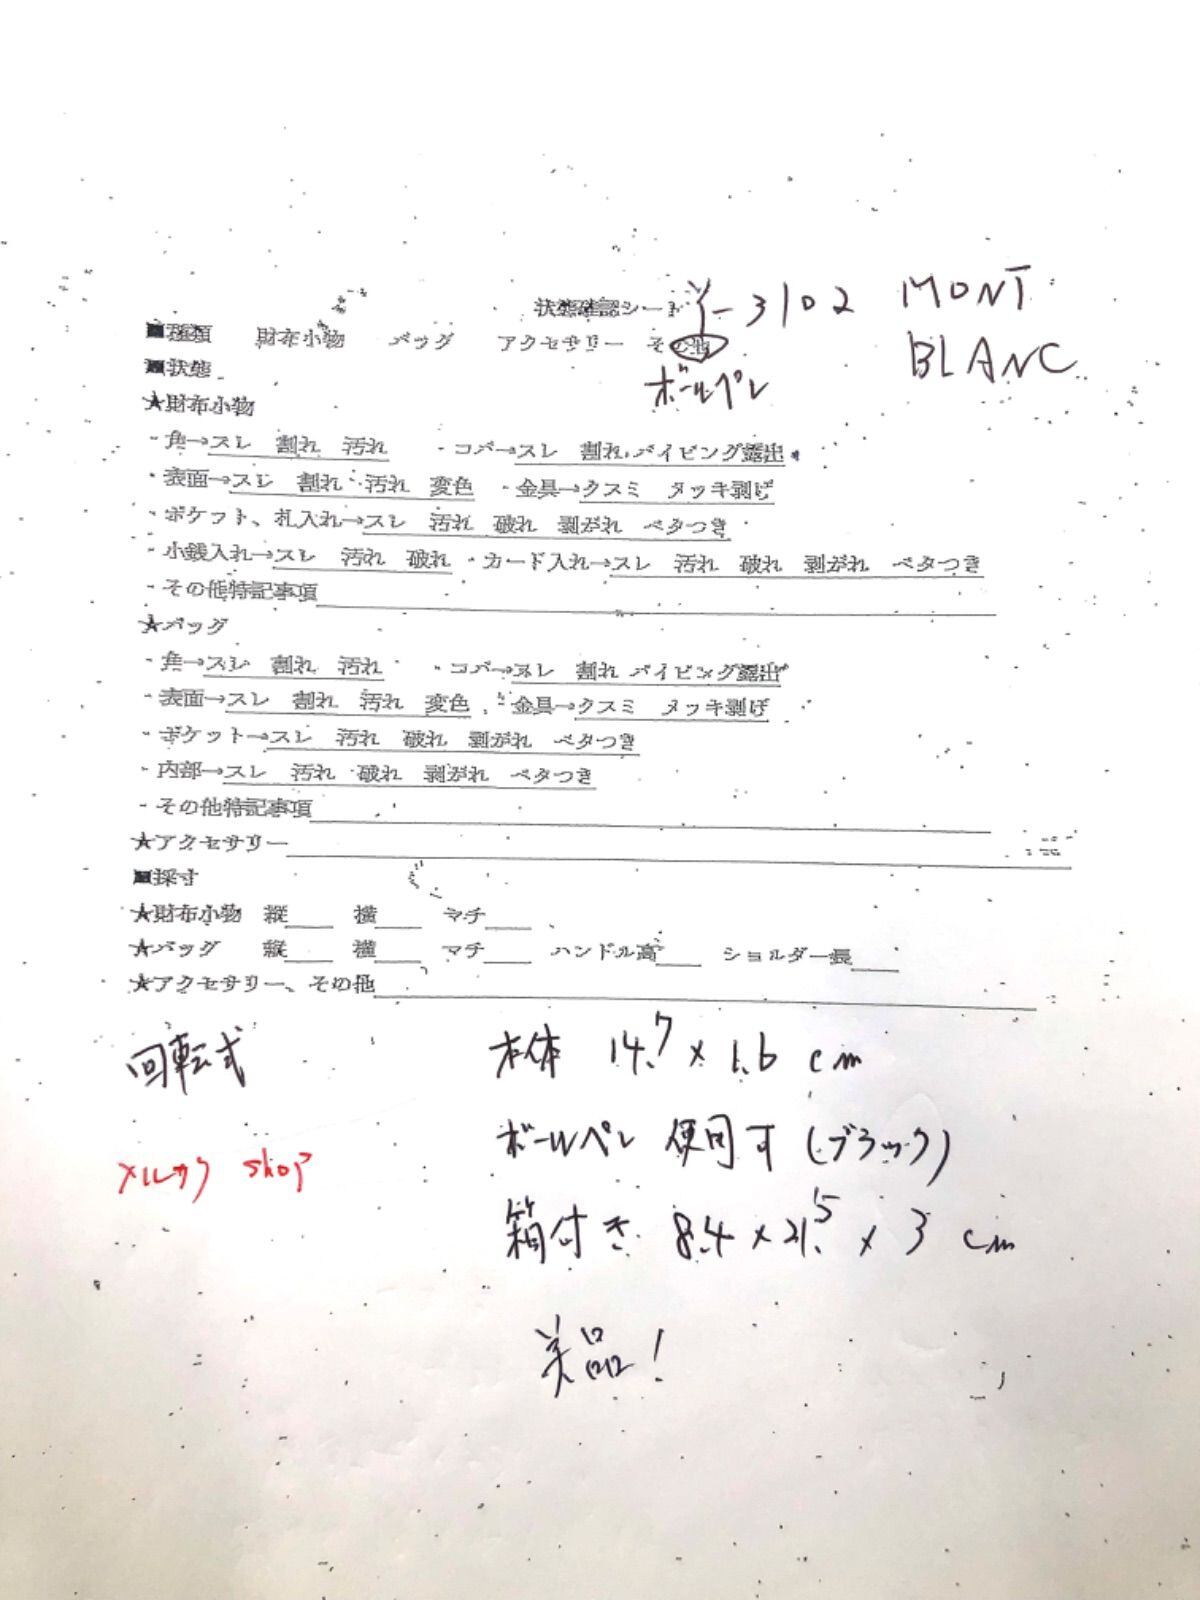 状態確認シート Y-3102 MONT
■種類 財布小物 バッグ アクセサリー その他 BLANC
■状態 ボールペン
★財布小物
・角→スレ 割れ 汚れ ・コバ→スレ 割れ パイピング露出
・表面→スレ 割れ 汚れ 変色 ・金具→クスミ メッキ剥げ
・ポケット、札入れ→スレ 汚れ 破れ 剥がれ ベタつき
・小銭入れ→スレ 汚れ 破れ ・カード入れ→スレ 汚れ 破れ 剥がれ ベタつき
・その他特記事項
★バッグ
・角→スレ 割れ 汚れ ・コバ→スレ 割れ パイピング露出
・表面→スレ 割れ 汚れ 変色 ・金具→クスミ メッキ剥げ
・ポケット→スレ 汚れ 破れ 剥がれ ベタつき
・内部→スレ 汚れ 破れ 剥がれ ベタつき
・その他特記事項
★アクセサリー
■採寸
★財布小物 縦 横 マチ
★バッグ 縦 横 マチ ハンドル高 ショルダー長
★アクセサリー、その他
回転式 本体 14.7 x 1.6 cm
ボールペン 使用可 (ブラック)
メルカリ shop
箱付き 8.4 x 21.5 x 3 cm
美品!